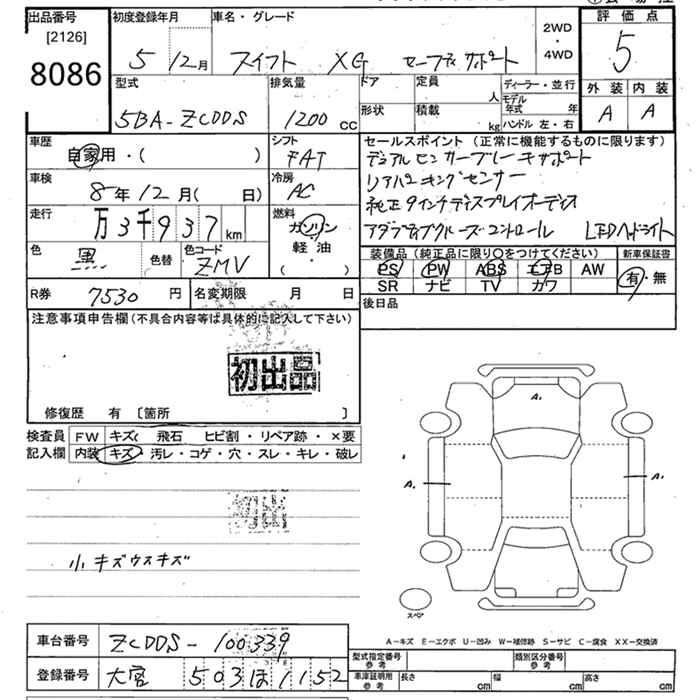 出品番号 初度登録年月 車名・グレード 2WD・4WD 評価点
[2126]
8086 5 12月 スイフト XG セーフティサポート 5
型式 排気量 ドア 定員 人 ディーラー・並行 外装 内装
5BA-ZCDDS 1200 cc 形状 積載 kg モデル年式 年 ハンドル 左・右 A A
車歴 自家用・( ) シフト FAT
セールスポイント (正常に機能するものに限ります)
デュアルセンサーブレーキサポート
車検 8年12月( 日) 冷房 AC
リアパーキングセンサー
純正9インチディスプレイオーディオ
走行 万3千937km 燃料 ガソリン・軽油・( )
アダプティブクルーズコントロール LEDヘッドライト
色 黒 色替 色コード ZMV
装備品 (純正品に限り○をつけてください) 新車保証書
PS PW ABS エアB AW 有・無
SR ナビ TV カワ
R券 7530円 名変期限 月 日
後日品
注意事項申告欄(不具合内容等は具体的に記入して下さい)
初出品
修復歴 有 [箇所 ]
検査員記入欄 FW キズ・飛石・ヒビ割・リペア跡・×要
内装 キズ・汚レ・コゲ・穴・スレ・キレ・破レ
A1
A1 A1
初出
小キズウスキズ
スペア
A-キズ E-エクボ U-凹み W-補修跡 S-サビ C-腐食 XX-交換済
車台番号 ZCDDS-100339
型式指定番号 参考 類別区分番号 参考
登録番号 大宮 503ほ1152
車庫証明用 参考 長さ cm 幅 cm 高さ cm